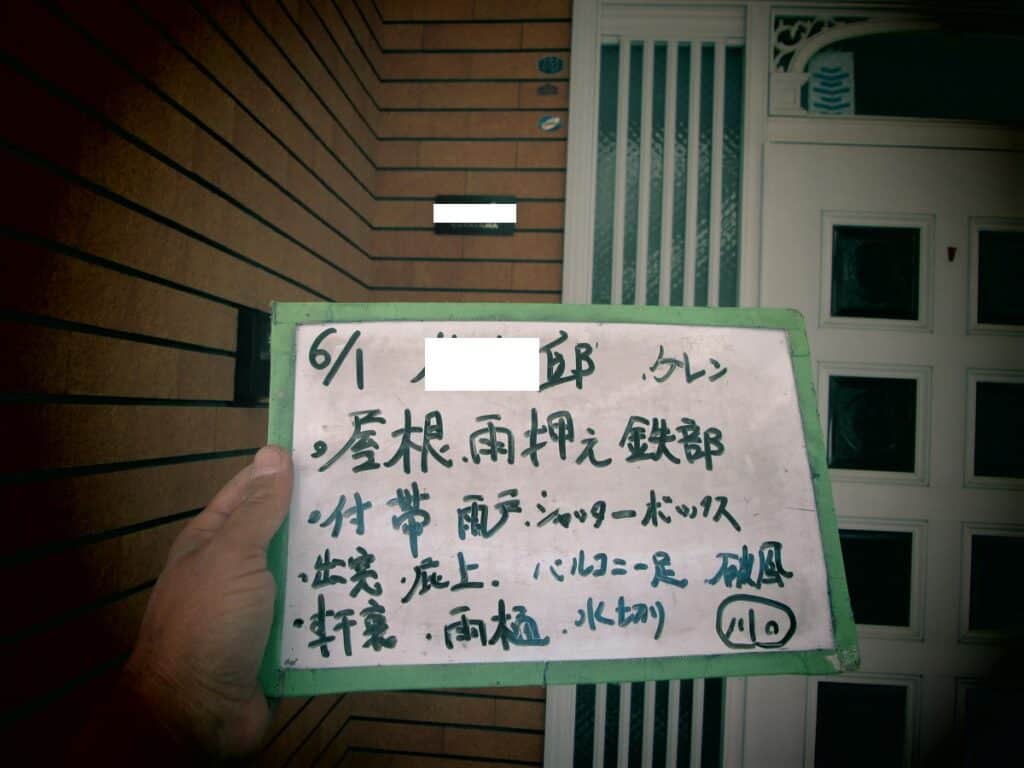 6/1 邸 .ケレン
・屋根.雨押え 鉄部
・付帯 雨戸.シャッターボックス
・出窓.庇上. バルコニー足 破風
・軒裏.雨樋.水切り 川口